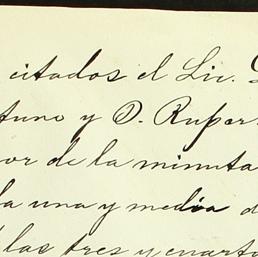 citados el Lic.
tuno y D. Ruper
or de la minuta
la una y media d
las tres y cuarto